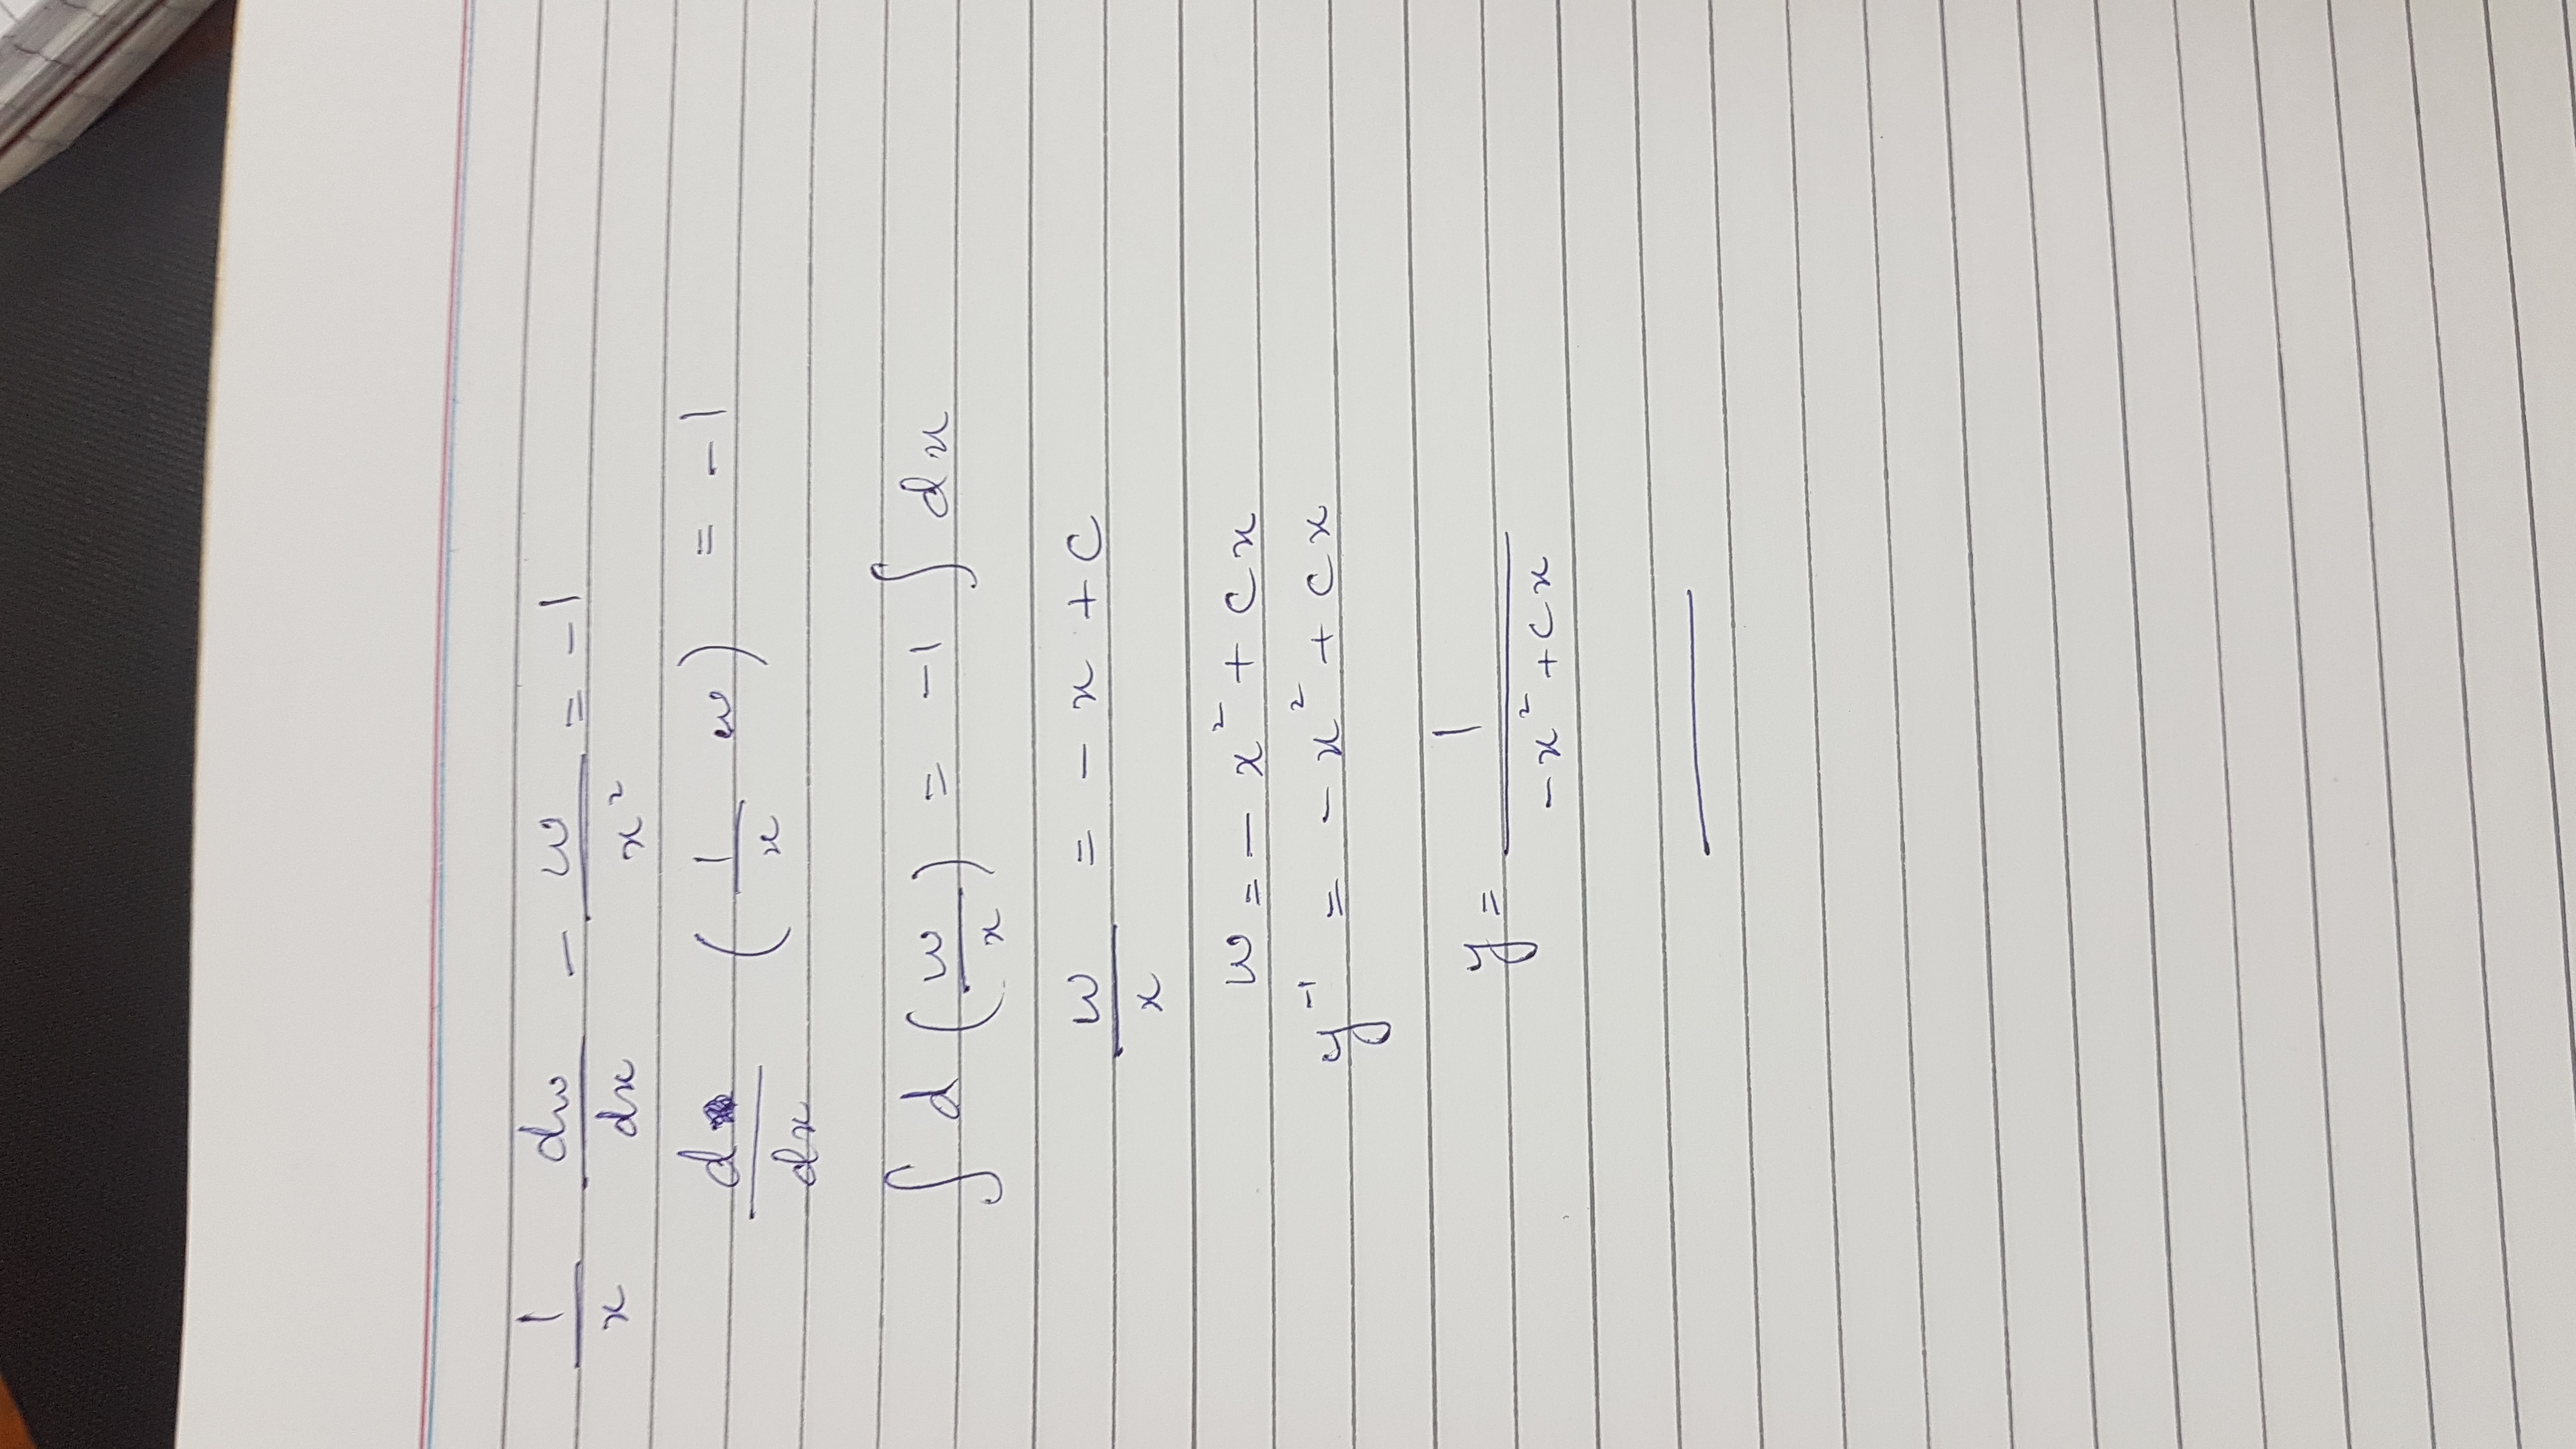 1/x dw/dx - w/x² = -1
d/dx (1/x w) = -1
∫ d (w/x) = -1 ∫ dx
w/x = - x + c
w = - x² + cx
y⁻¹ = - x² + cx
y = 1/(-x² + cx)